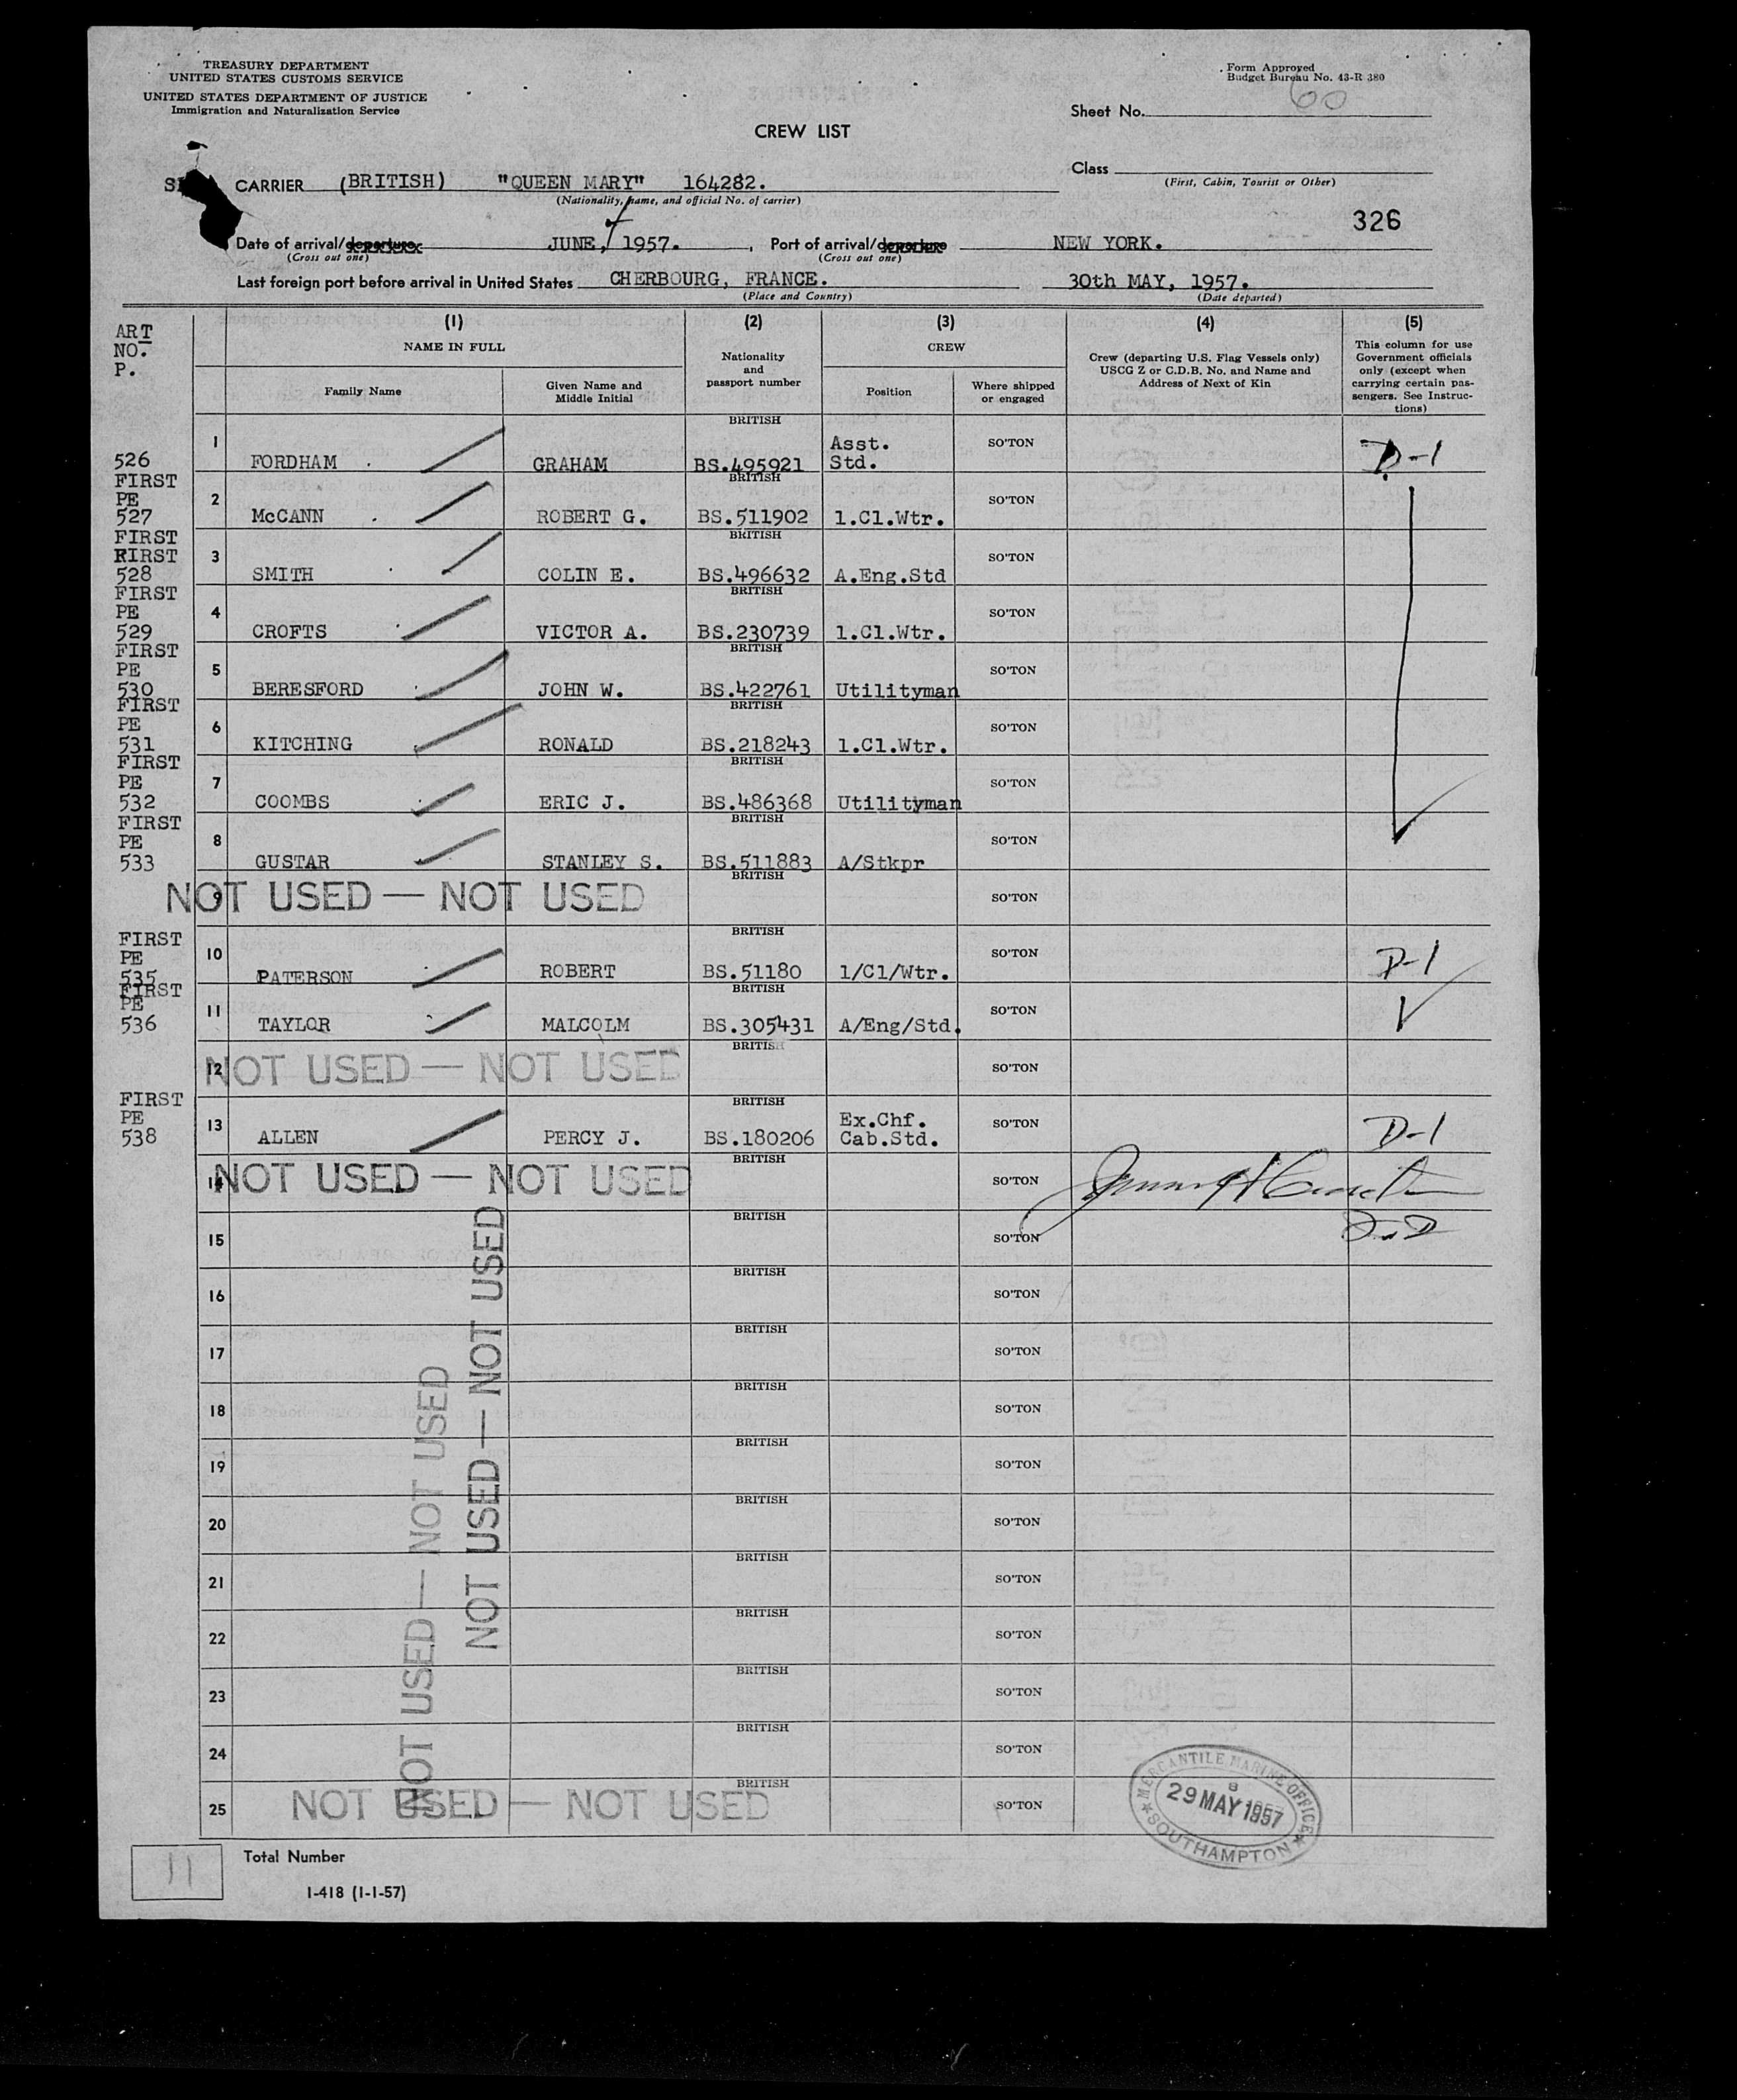 TREASURY DEPARTMENT
UNITED STATES CUSTOMS SERVICE
UNITED STATES DEPARTMENT OF JUSTICE
Immigration and Naturalization Service
Form Approved
Budget Bureau No. 43-R 380
Sheet No. 60
CREW LIST
CARRIER (BRITISH) "QUEEN MARY" 164282.
(Nationality, name, and official No. of carrier)
Class
(First, Cabin, Tourist or Other)
326
Date of arrival/departure JUNE, 1957. , Port of arrival/departure NEW YORK.
(Cross out one) (Cross out one)
Last foreign port before arrival in United States CHERBOURG, FRANCE. 30th MAY, 1957.
(Place and Country) (Date departed)
ART NO. P.
(1) (2) (3) (4) (5)
NAME IN FULL
Family Name
Given Name and Middle Initial
Nationality and passport number
CREW
Position
Where shipped or engaged
Crew (departing U.S. Flag Vessels only) USCG Z or C.D.B. No. and Name and Address of Next of Kin
This column for use Government officials only (except when carrying certain passengers. See Instructions)
526 1 FORDHAM GRAHAM BRITISH BS.495921 Asst. Std. SO'TON D-1
FIRST PE 527 2 McCANN ROBERT G. BRITISH BS.511902 1.Cl.Wtr. SO'TON
FIRST FIRST 528 3 SMITH COLIN E. BRITISH BS.496632 A.Eng.Std SO'TON
FIRST PE 529 4 CROFTS VICTOR A. BRITISH BS.230739 1.Cl.Wtr. SO'TON
FIRST PE 530 5 BERESFORD JOHN W. BRITISH BS.422761 Utilityman SO'TON
FIRST PE 531 6 KITCHING RONALD BRITISH BS.218243 1.Cl.Wtr. SO'TON
FIRST PE 532 7 COOMBS ERIC J. BRITISH BS.486368 Utilityman SO'TON
FIRST PE 533 8 GUSTAR STANLEY S. BRITISH BS.511883 A/Stkpr SO'TON
9 NOT USED — NOT USED BRITISH SO'TON
FIRST PE 535 10 PATERSON ROBERT BRITISH BS.51180 1/Cl/Wtr. SO'TON D-1
FIRST PE 536 11 TAYLOR MALCOLM BRITISH BS.305431 A/Eng/Std. SO'TON
12 NOT USED — NOT USED BRITISH SO'TON
FIRST PE 538 13 ALLEN PERCY J. BRITISH BS.180206 Ex.Chf. Cab.Std. SO'TON D-1
14 NOT USED — NOT USED BRITISH SO'TON
15 BRITISH SO'TON
16 BRITISH SO'TON
17 BRITISH SO'TON
18 BRITISH SO'TON
19 BRITISH SO'TON
20 BRITISH SO'TON
21 BRITISH SO'TON
22 BRITISH SO'TON
23 BRITISH SO'TON
24 BRITISH SO'TON
25 NOT USED — NOT USED BRITISH SO'TON
NOT USED — NOT USED
NOT USED — NOT USED
MERCANTILE MARINE OFFICE
29 MAY 1957
SOUTHAMPTON
11
Total Number
I-418 (1-1-57)